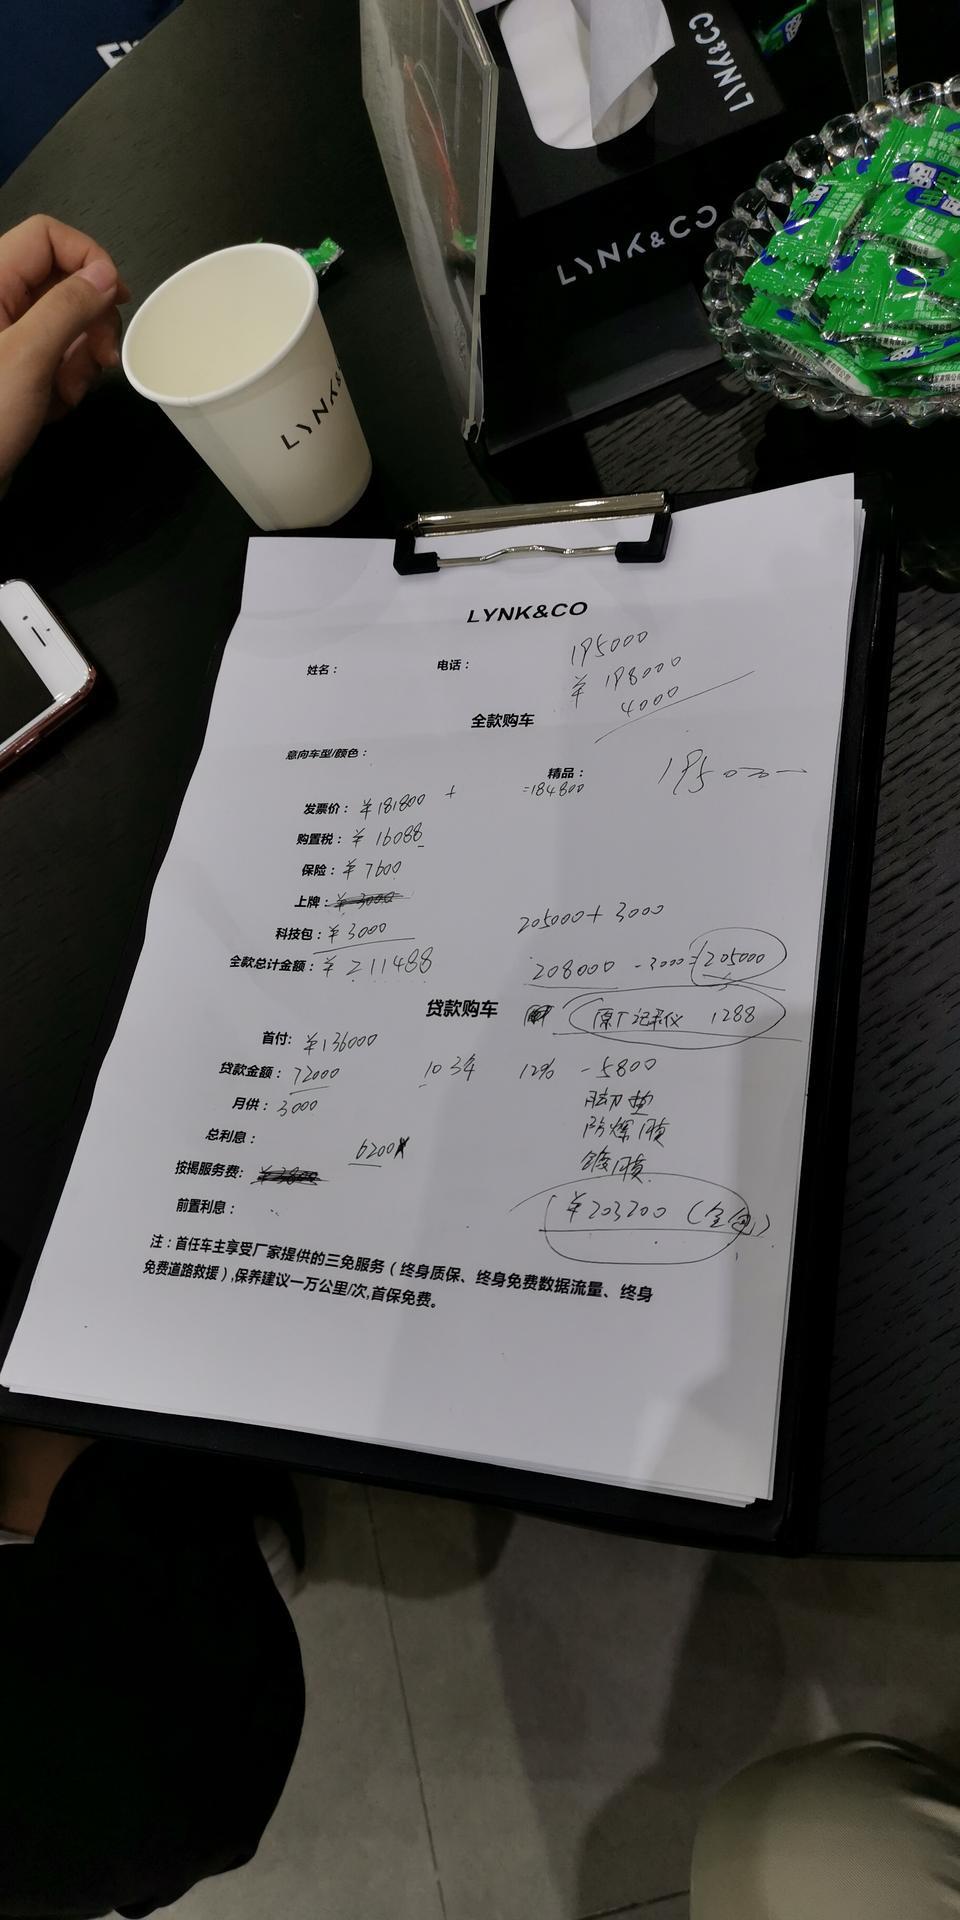 LYNK&CO
LYNK&CO
LYNK&
LYNK&CO
195000
姓名：
电话：
¥ 198000
4000
全款购车
意向车型/颜色：
精品：
195000
发票价：¥181800 + =184800
购置税：¥ 16088
保险：¥ 7600
上牌：¥ 3000
科技包：¥ 3000
205000+ 3000
全款总计金额：¥ 211488
208000 -3000=205000
贷款购车
原厂记录仪 1288
首付：¥136000
贷款金额：72000 10 3年 12% -5800
月供：3000
脚垫
防爆膜
总利息：
6200
镀膜
按揭服务费：¥3800
前置利息：
¥203200 (全包)
注：首任车主享受厂家提供的三免服务（终身质保、终身免费数据流量、终身
免费道路救援）,保养建议一万公里/次,首保免费。